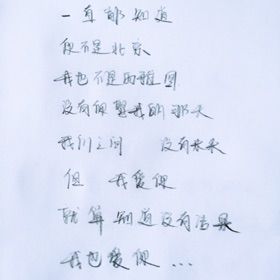 一直都知道
你不是北京
我也不是的雅图
没有你娶我的那天
我们之间 没有未来
但 我爱你
就算知道没有结果
我也爱你...